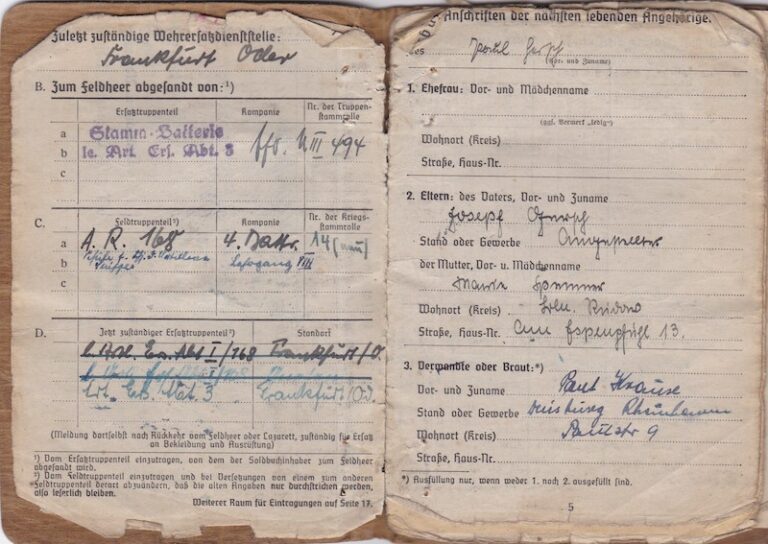 Zuletzt zuständige Wehrersatzdienststelle:
Frankfurt Oder
B. Zum Feldheer abgesandt von:¹)
Ersatztruppenteil Kompanie Nr. der Truppen-
stammrolle
a Stamm-Batterie
b le. Art. Ers. Abt. 3 494
c
C. Feldtruppenteil²) Kompanie Nr. der Kriegs-
stammrolle
a A. R. 168 4. Battr. 14
b Lehrgang VIII
c
D. Jetzt zuständiger Ersatztruppenteil²) Standort
I/168 Frankfurt/O.
3 Frankfurt/Od.
(Meldung dortselbst nach Rückkehr vom Feldheer oder Lazarett, zuständig für Ersatz
an Bekleidung und Ausrüstung)
¹) Vom Ersatztruppenteil einzutragen, von dem der Soldbuchinhaber zum Feldheer
abgesandt wird.
²) Vom Feldtruppenteil einzutragen und bei Versetzungen von einem zum anderen
Feldtruppenteil derart abzuändern, daß die alten Angaben nur durchstrichen werden,
also leserlich bleiben.
Weiterer Raum für Eintragungen auf Seite 17.
Anschriften der nächsten lebenden Angehörige.
des Paul
(Vor- und Zuname)
1. Ehefrau: Vor- und Mädchenname
(ggf. Vermerk „ledig")
Wohnort (Kreis)
Straße, Haus-Nr.
2. Eltern: des Vaters, Vor- und Zuname
Joseph
Stand oder Gewerbe Angestellter
der Mutter, Vor- u. Mädchenname
Wohnort (Kreis) Bln. Rudow
Straße, Haus-Nr. Am Espenpfuhl 13.
3. Verwandte oder Braut:*)
Vor- und Zuname Krause
Stand oder Gewerbe Duisburg
Wohnort (Kreis) 9
Straße, Haus-Nr.
*) Ausfüllung nur, wenn weder 1. noch 2. ausgefüllt sind.
5